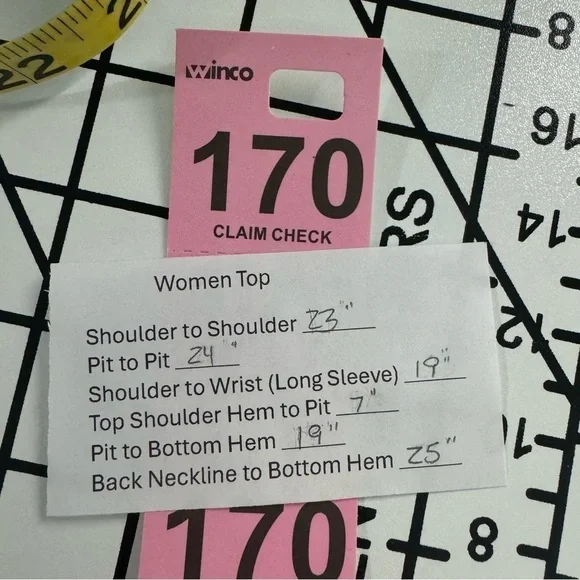 22
8
winco
16
170
CLAIM CHECK
RS
14
12
Women Top
Shoulder to Shoulder 23"
Pit to Pit 24"
Shoulder to Wrist (Long Sleeve) 19"
Top Shoulder Hem to Pit 7"
Pit to Bottom Hem 19"
Back Neckline to Bottom Hem 25"
170
8